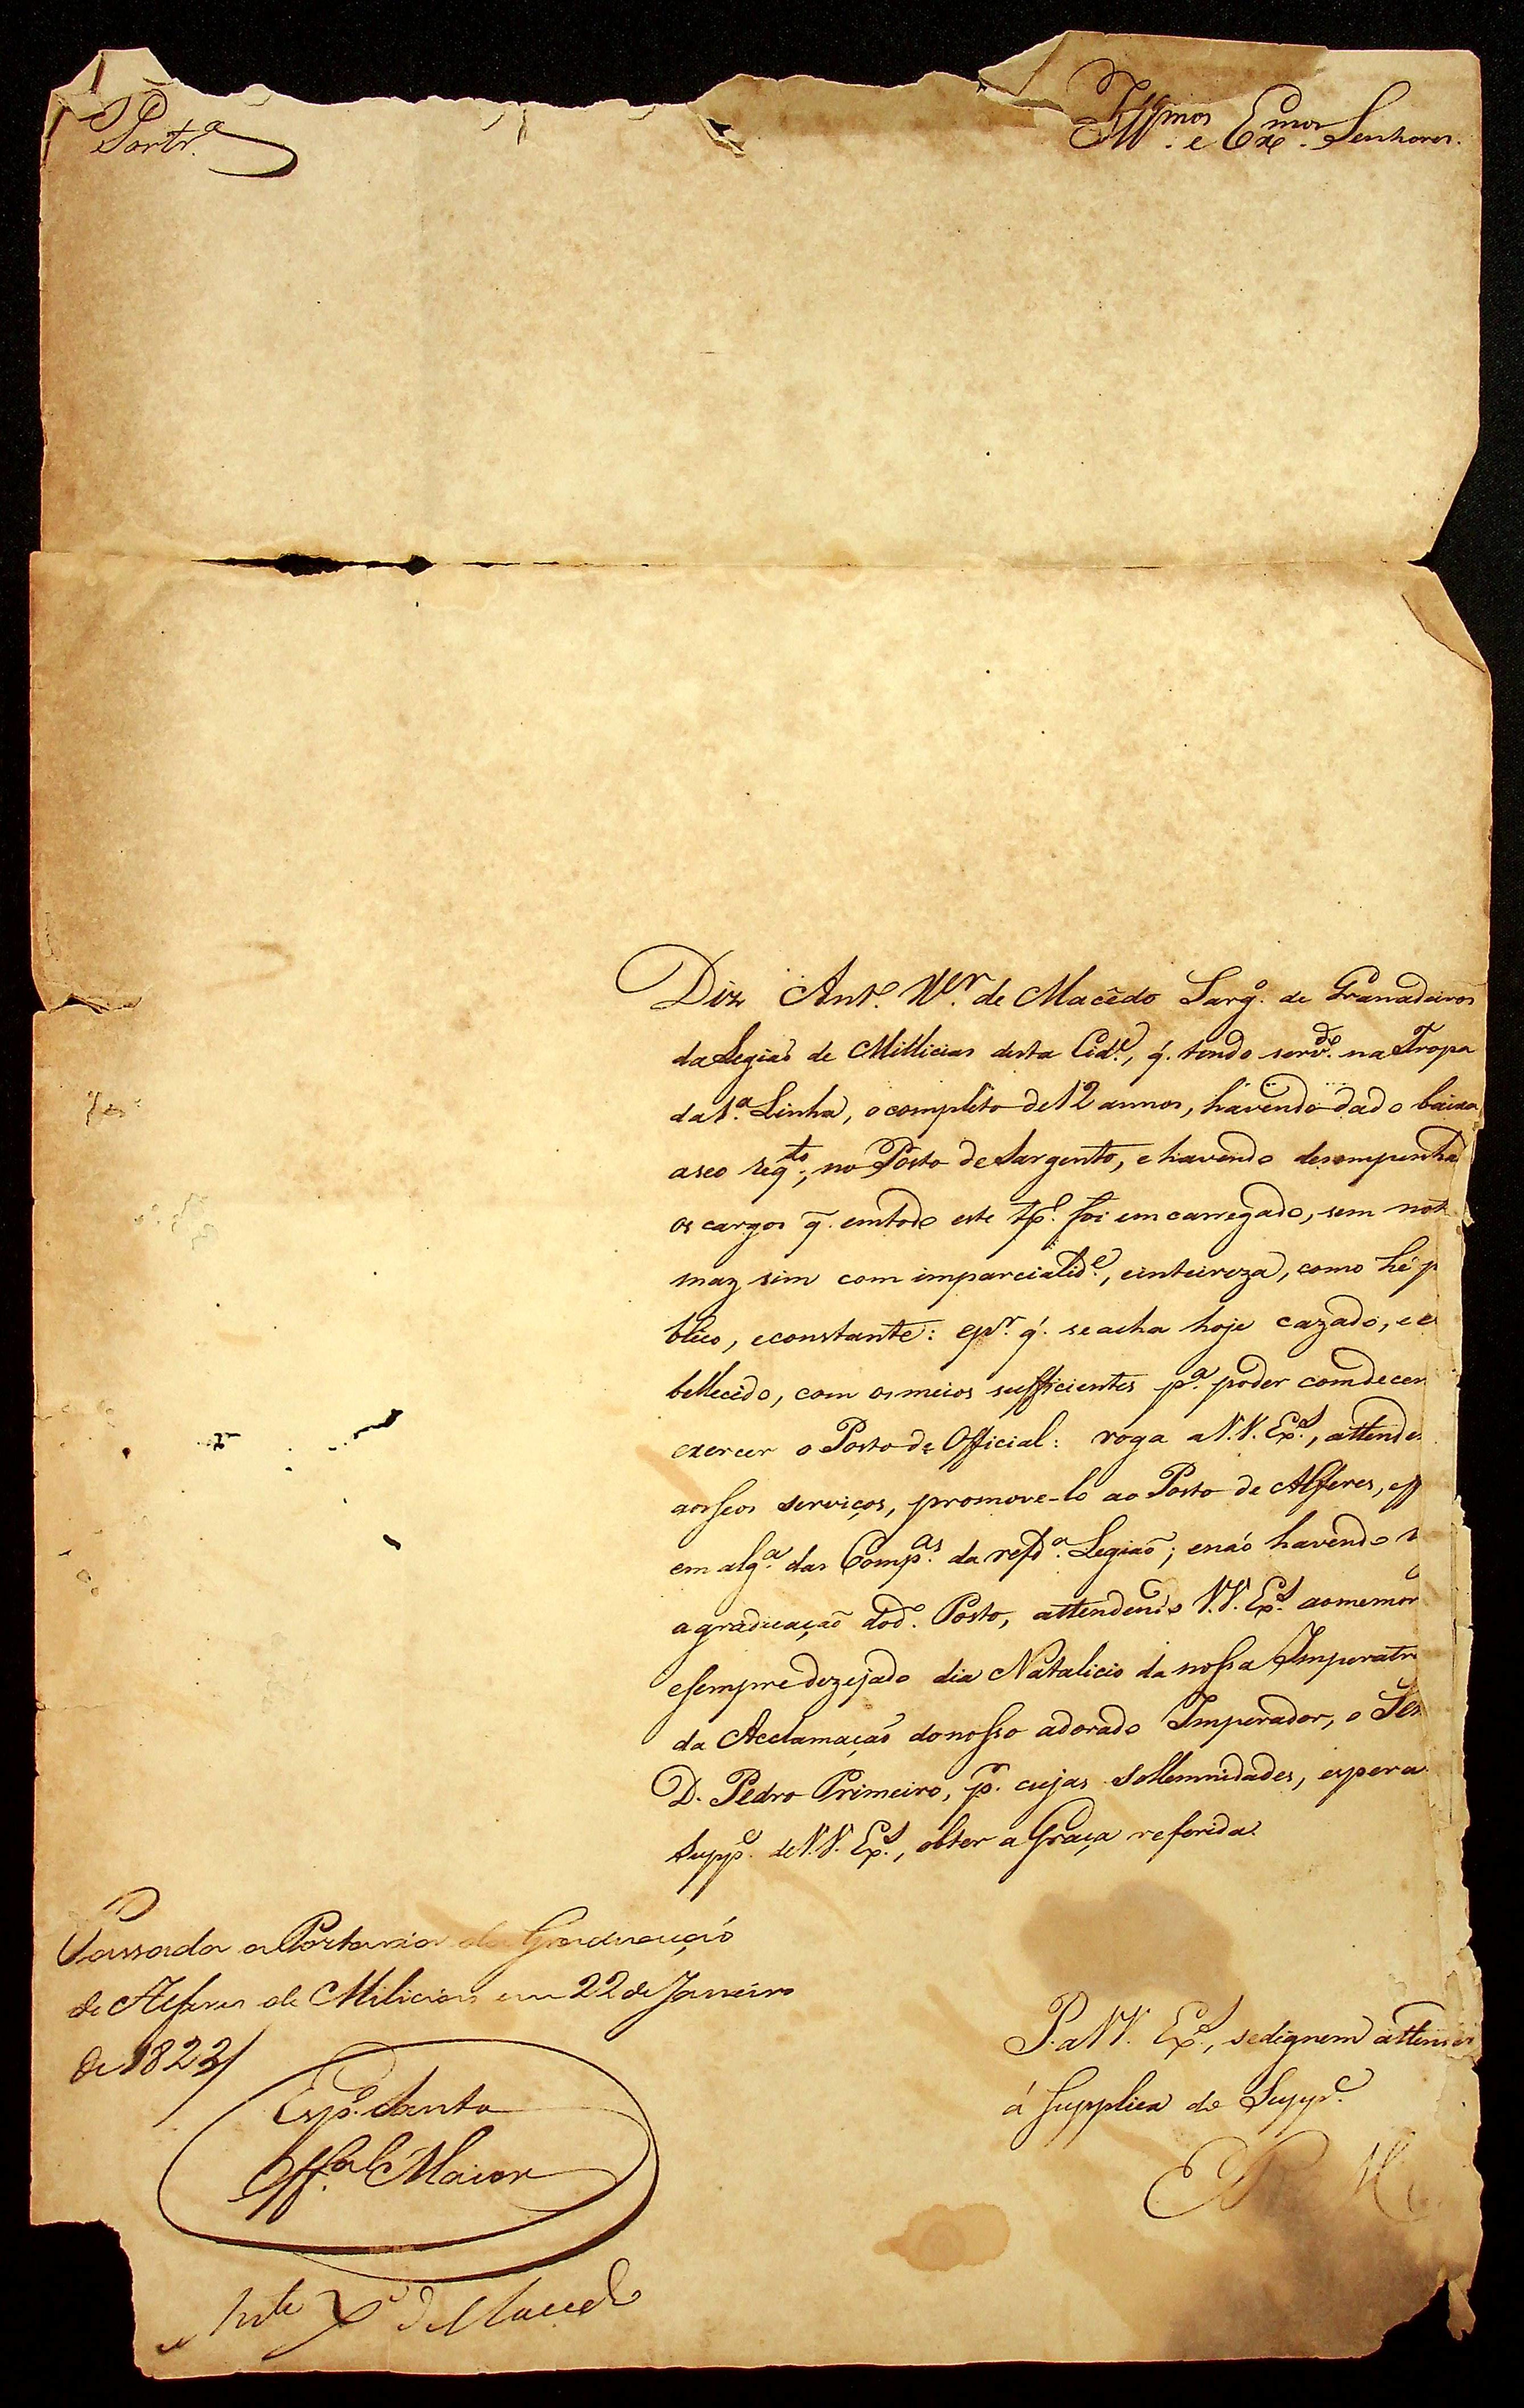 Portr.ª
Ill.mos e Ex.mos Senhores.
Diz Ant.º de Macêdo Sarg.º de Granadeiros
da Legiaõ de Millicias desta Cid.e, q. tendo serv.do na Tropa
da 1.ª Linha, o completo de 12 annos, havendo dado baixa
a seo reqt.to, no Posto de Sargento, e havendo desempenha
os cargos q. em todo este tp.º foi emcarregado, sem not
maz sim com imparcialid.e, e inteireza, como hé p
blico, e constante: e p.r q. se acha hoje cazado, e e
bellecido, com os meios sufficientes p.ª poder com decen
exercer o Posto de Official: roga a V.V. Ex.s, attende
aos seos serviços, promove-lo ao Posto de Alferes, eff
em alg.ª das Comp.as da refd.ª Legiaõ; e naõ havendo
a graduaçaõ do d.º Posto, attendendo V.V. Ex.s ao memor
e sempre dezejado dia Natalicio da nossa Imperatr
da Acclamaçaõ do nosso adorado Imperador, o Sen
D. Pedro Primeiro, p.r cujas sollemnidades, espera
Supp.e de V.V. Ex.s, obter a Graça referida.
Passada a Portaria da Graduaçaõ
de Alferes de Milicias em 22 de Janeiro
de 1823
Esp.º Santo
Off.al Maior
P. a V.V. Ex.s, se dignem attender
á supplica do Supp.e
E R M
de Macedo